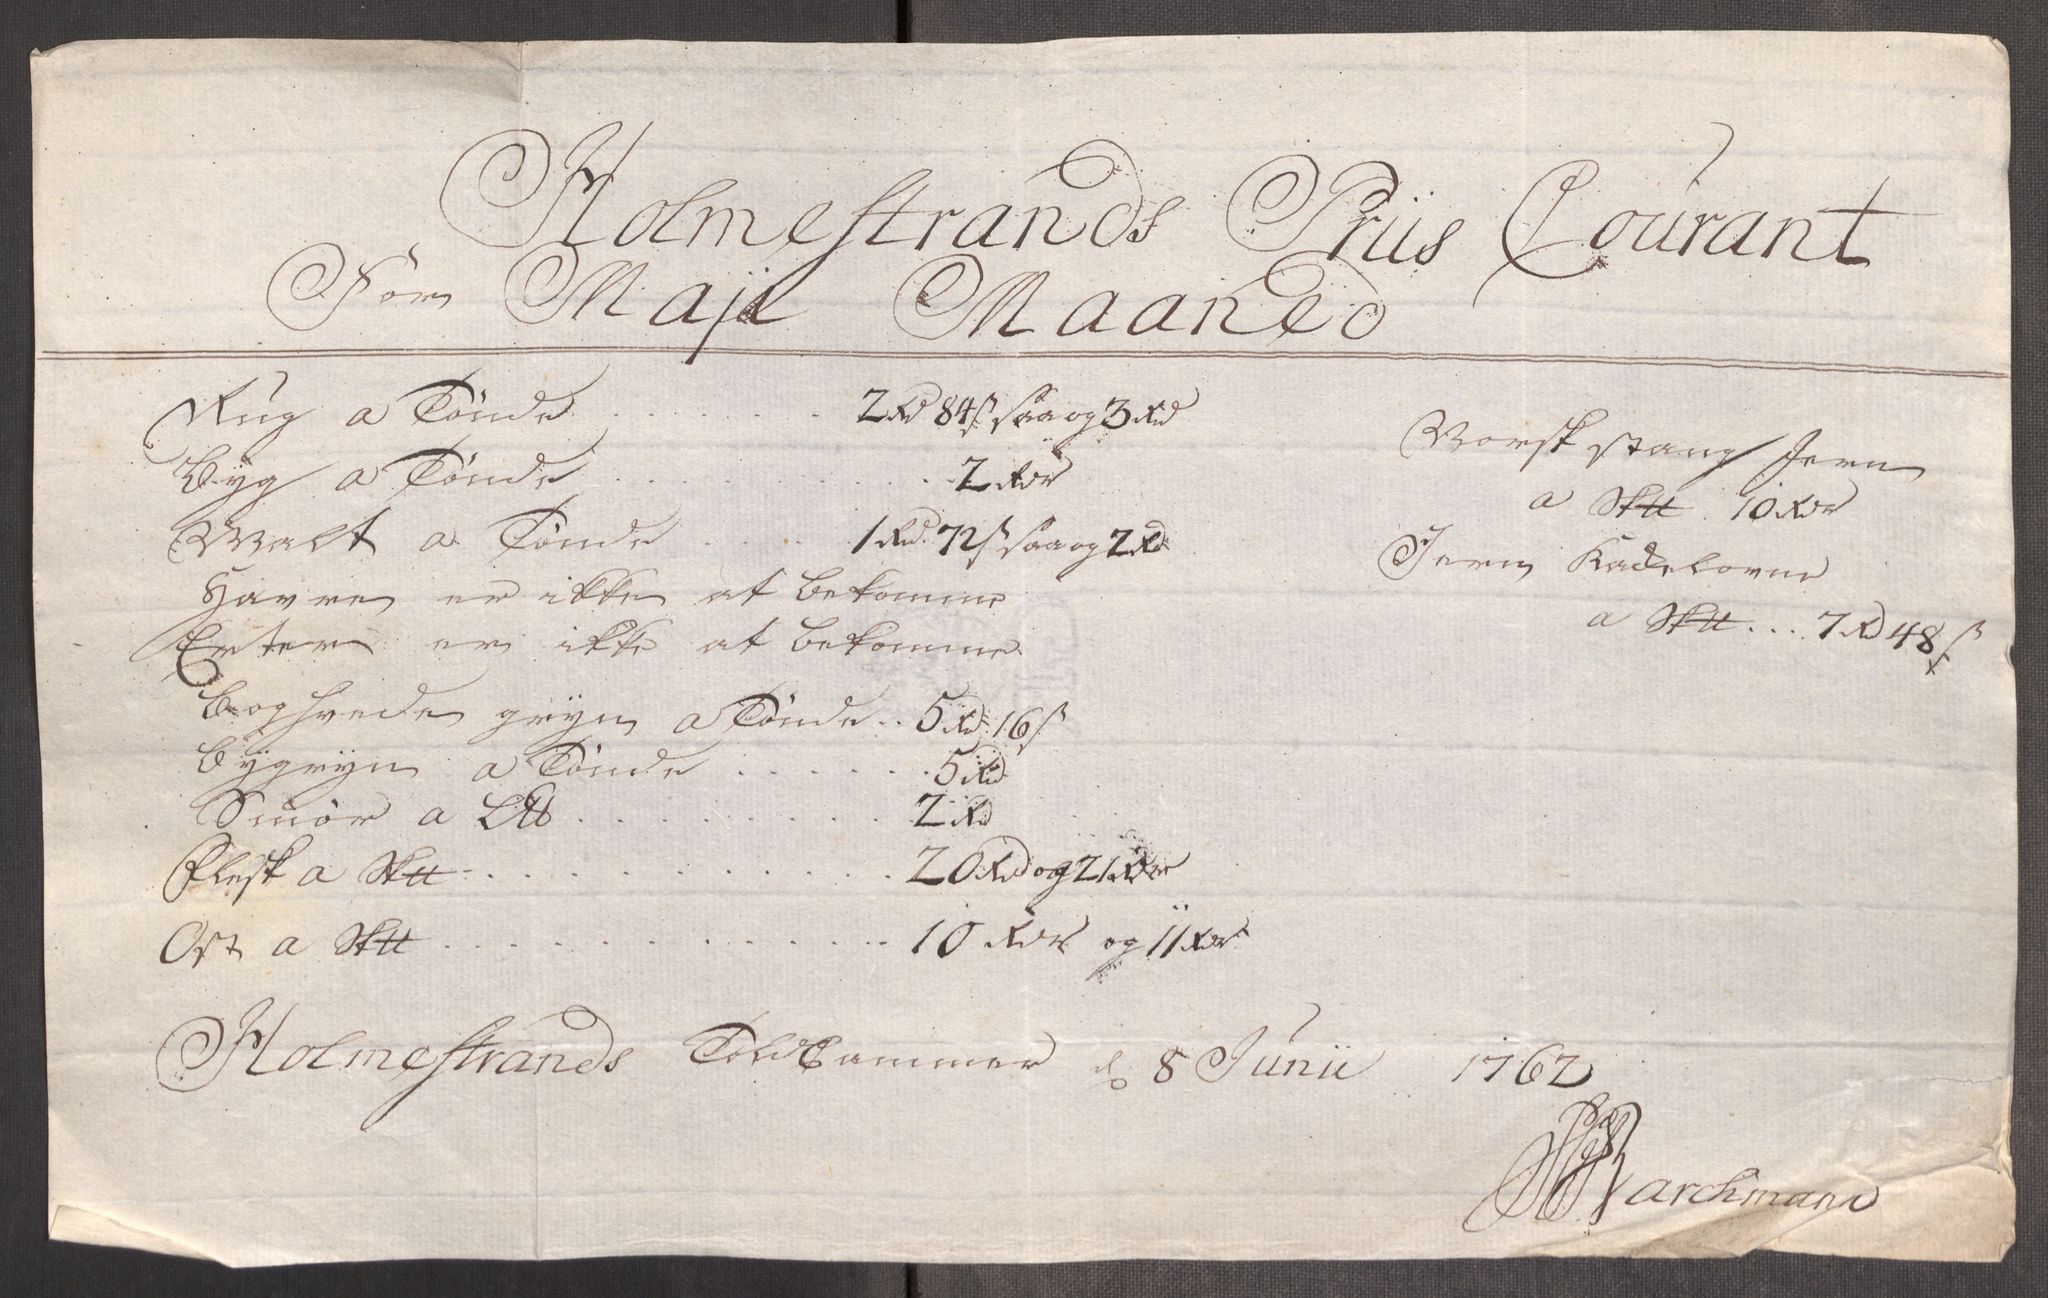 Holmestrands Priis Courant
For Maji Maaned
Rug a Tønde . . . . . . . 2 Rd 84 ß saa og 3 Rd
Byg a Tønde . . . . . . . . . . 2 Rdr
Malt a Tønde . . . . . . 1 Rd. 72 ß saa og 2 Rd
Havre er ikke at bekomme
Erter er ikke at bekomme
Boghvede gryn a Tønde . . 5 Rd 16 ß
Bygryn a Tønde . . . . . . . 5 Rd
Smør a L℔ . . . . . . . . . . 2 Rd
Flesk a Sk℔ . . . . . . . . . . . . 20 Rd og 21 Rdr
Ost a Sk℔ . . . . . . . . . . . . . 10 Rdr og 11 Rdr
Norsk stang Jern
a Sk℔ . 10 Rdr
Jern Kackelovne
a Sk℔ . . . 7 Rd 48 ß
Holmestrands Told Cammer d. 8 Junii 1762
Barchmand